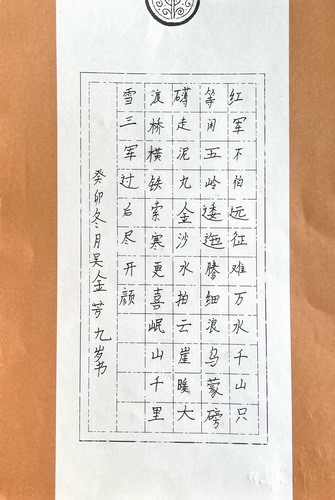 红军不怕远征难万水千山只
等闲五岭逶迤腾细浪乌蒙磅
礴走泥丸金沙水拍云崖暖大
渡桥横铁索寒更喜岷山千里
雪三军过后尽开颜
癸卯冬月吴金芳九岁书